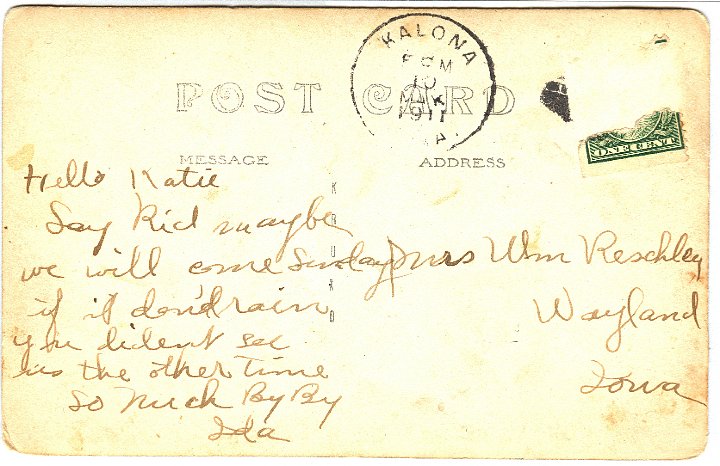 KALONA
PM
10
1911
IA.
POST CARD
MESSAGE
ADDRESS
ONE CENT
KRUXO
Hello Katie
Say Kid maybe
we will come Sunday
if it don'd rain
you dident see
us the other Time
So Much By By
Ida
Mrs Wm Reschley
Wayland
Iowa